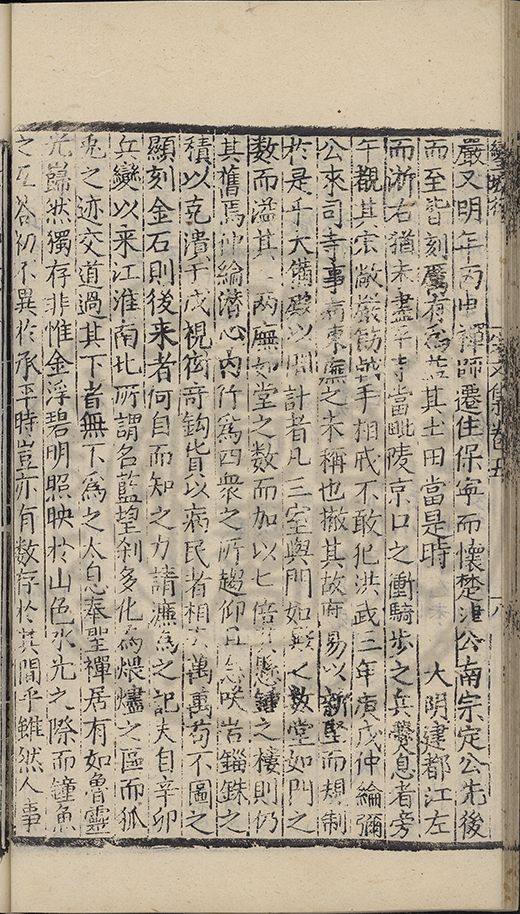 嚴又明年丙申禪師遷住保寧而懷楚淮公南宗定公先後
而至皆刻厲有為益其土田當是時　大明建都江左
而浙右猶未盡平寺當毗陵京口之衝騎步之兵爨息者旁
午觀其宗敞嚴飭戟手相戒不敢犯洪武三年庚戌仲綸彌
公來司寺事病東廡之未稱也撤其故而易以新堅而規制
於是乎大備殿以間計者凡三室與門如殿之數堂如門之
數而溢其一兩廡如堂之數而加以七倍其懸鐘之樓則仍
其舊焉仲綸潛心內行為四眾之所趨仰且
積以克潰于戊視
顯刻金石則後來者何自而知之乃請濂為之記夫自辛卯
兵變以來江淮南北所謂名藍望剎多化為煨燼之區而狐
兔之迹交道過其下者無不為之太息奉聖禪居有如魯靈
光巋然獨存非惟金浮碧明照映於山色水光之際而鐘魚
之互答初不異於承平時豈亦有數存於其間乎雖然人事